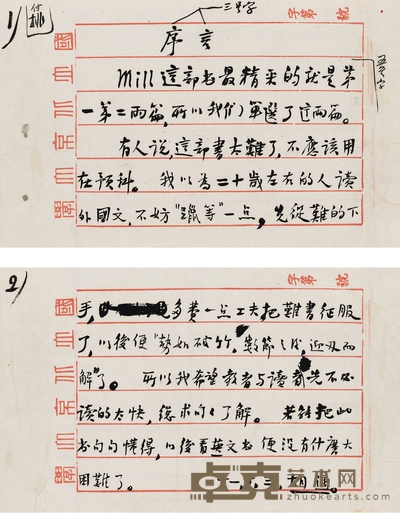 1)
付排
三号字
字第 號
序言
Mill這部书最精采的就是第
一第二兩篇,所以我们單選了這兩篇。
有人說,這部書太難了,不應該用
在預科。 我以为二十歲左右的人讀
外國文,不妨“躐等”一点,先從難的下
國立北京大學
2)
字第 號
手,多費一点工夫把難書征服
了,以後便“勢如破竹,數節之後,迎刃而
解”了。 所以我希望教者与讀者先不必
讀的太快,總求句句了解。 若能把此
书句句懂得,以後看英文书便没有什麽大
困難了。 十一,六,三,胡適。
國立北京大學
卓克艺术网
zhuokearts.com